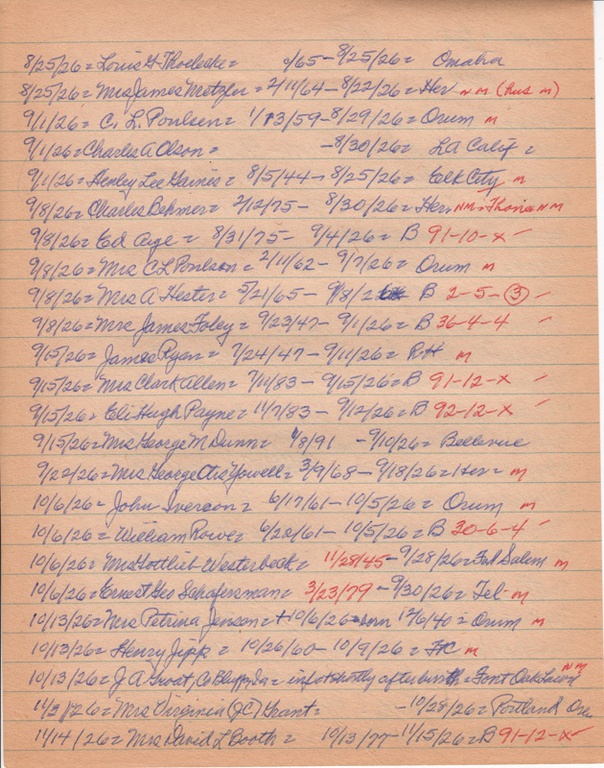 8/25/26= Louis G Thoelecke= /65-8/25/26= Omaha
8/25/26= Mrs James Metzler= 2/11/64-8/22/26= Her NM (Hus M)
9/1/26= C. L. Poulsen= 1/13/59-8/29/26= Orum M
9/1/26= Charles A Olson= -8/30/26= LA Calif =
9/1/26= Henley Lee Gaines= 8/5/44-8/25/26= Elk City M
9/8/26= Charles Behmer= 2/12/75- 8/30/26= Her NM NM
9/8/26= Ed Aye= 8/31/75- 9/4/26= B 91-10-X -
9/8/26= Mrs C L Poulson= 2/11/62-9/7/26= Orum M
9/8/26= Mrs A Hester= 5/21/65- 9/8/26 B 2-5-3 -
9/8/26= Mrs James Foley= 9/23/47- 9/1/26= B 36-4-4 -
9/15/26= James Ryan= 7/24/47-9/11/26= RH M
9/15/26= Mrs Clark Allen= 7/11/83-9/15/26= B 91-12-X -
9/15/26= Eli Hugh Payne= 11/7/83- 9/12/26= B 92-12-X -
9/15/26= Mrs George M Dunn= 4/8/91 -9/10/26= Bellevue
9/22/26= Mrs George Otis Yowell= 3/9/68-9/18/26= Her= M
10/6/26- John Iverson= 6/17/61-10/5/26= Orum M
10/6/26= William Rowe= 6/20/61- 10/5/26= B 30-6-4 -
10/6/26= Mrs Gottlieb Westerbeck= 11/28/45-9/28/26= Ft Salem M
10/6/26= Ernest Geo Schafersman= 3/23/79-9/30/26= Tel- M
10/13/26= Mrs Petrina Jenson= +10/6/26= born 12/6/40= Orum M
10/13/26= Henry Jipp= 10/26/60-10/9/26= FC M
10/13/26= J A Groat, Co Blupp Ia= inf shortly after birth= Font Oak Lawn NM
11/3/26= Mrs Virginia (JC) Grant= -10/28/26= Portland Ore
11/14/26= Mrs David L Booth= 10/13/77-11/15/26= B 91-12-X -